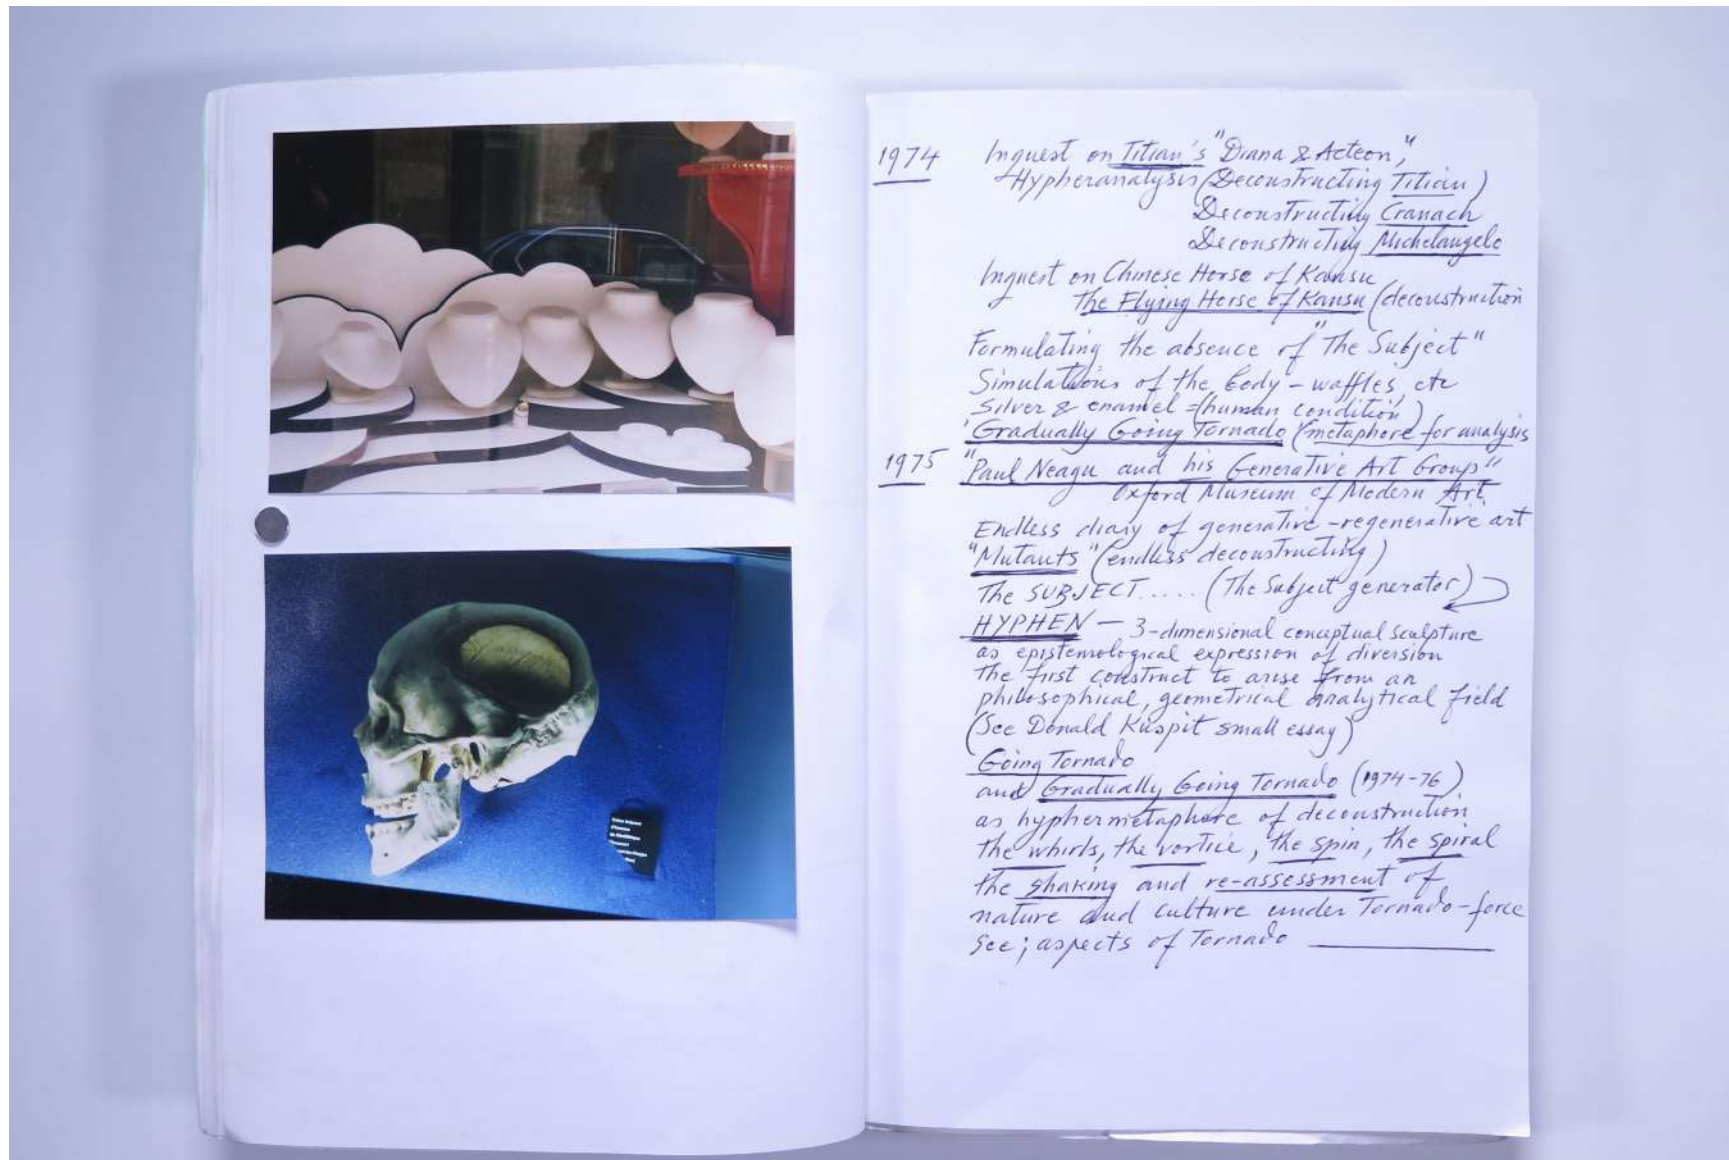 1974 Inquest on Titian's "Diana & Acteon,"
Hypheranalysis (Deconstructing Titian)
Deconstructing Cranach
Deconstructing Michelangelo
Inquest on Chinese Horse of Kansu
The Flying Horse of Kansu (deconstruction
Formulating the absence of "The Subject"
Simulations of the body – waffles, etc
Silver & enamel = (human condition)
'Gradually Going Tornado (metaphore for analysis
1975 "Paul Neagu and his Generative Art Group"
Oxford Museum of Modern Art.
Endless diary of generative – regenerative art
"Mutants" (endless deconstructing)
The SUBJECT..... (The Subject generator)
HYPHEN – 3-dimensional conceptual sculpture
as epistemological expression of diversion
the first construct to arise from an
philosophical, geometrical analytical field
(See Donald Kuspit small essay)
Going Tornado
and Gradually Going Tornado (1974-76)
as hyphermetaphore of deconstruction
the whirls, the vortice, the spin, the spiral
the shaking and re-assessment of
nature and culture under Tornado-force
See; aspects of Tornado